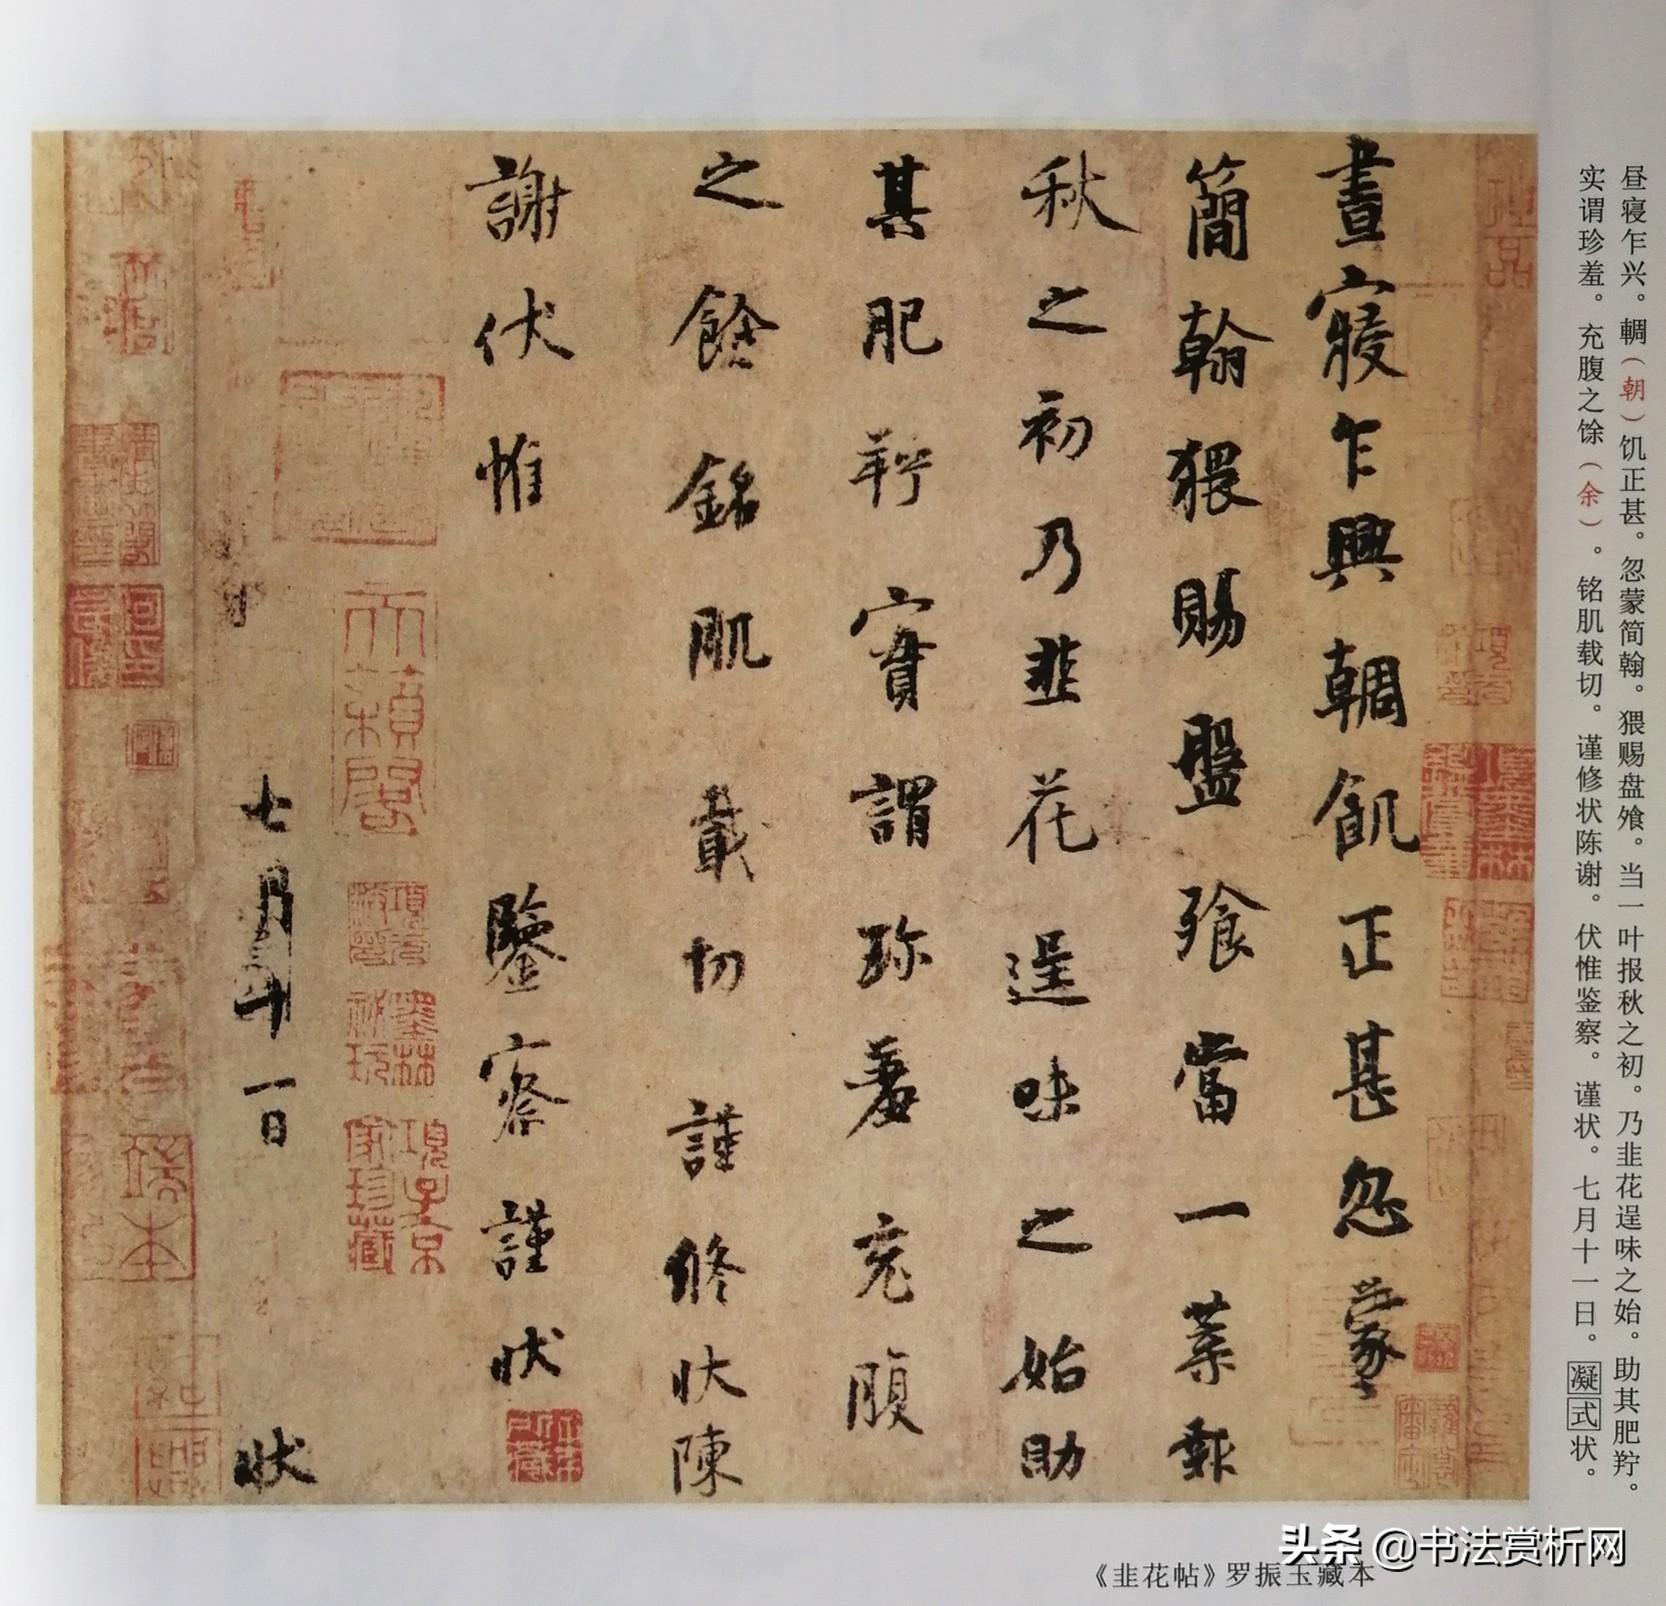 昼寝乍兴。輖（朝）饥正甚。忽蒙简翰。猥赐盘飧。当一叶报秋之初。乃韭花逞味之始。助其肥羜。
实谓珍羞。充腹之馀（余）。铭肌载切。谨修状陈谢。伏惟鉴察。谨状。七月十一日。凝式状。
晝寢乍興輖飢正甚忽蒙
簡翰猥賜盤飧當一葉報
秋之初乃韭花逞味之始助
其肥羜實謂珎羞充腹
之餘銘肌載切謹修狀陳
謝伏惟鑒察謹狀
七月十一日狀
項子京家珍藏
《韭花帖》罗振玉藏本
头条 @书法赏析网